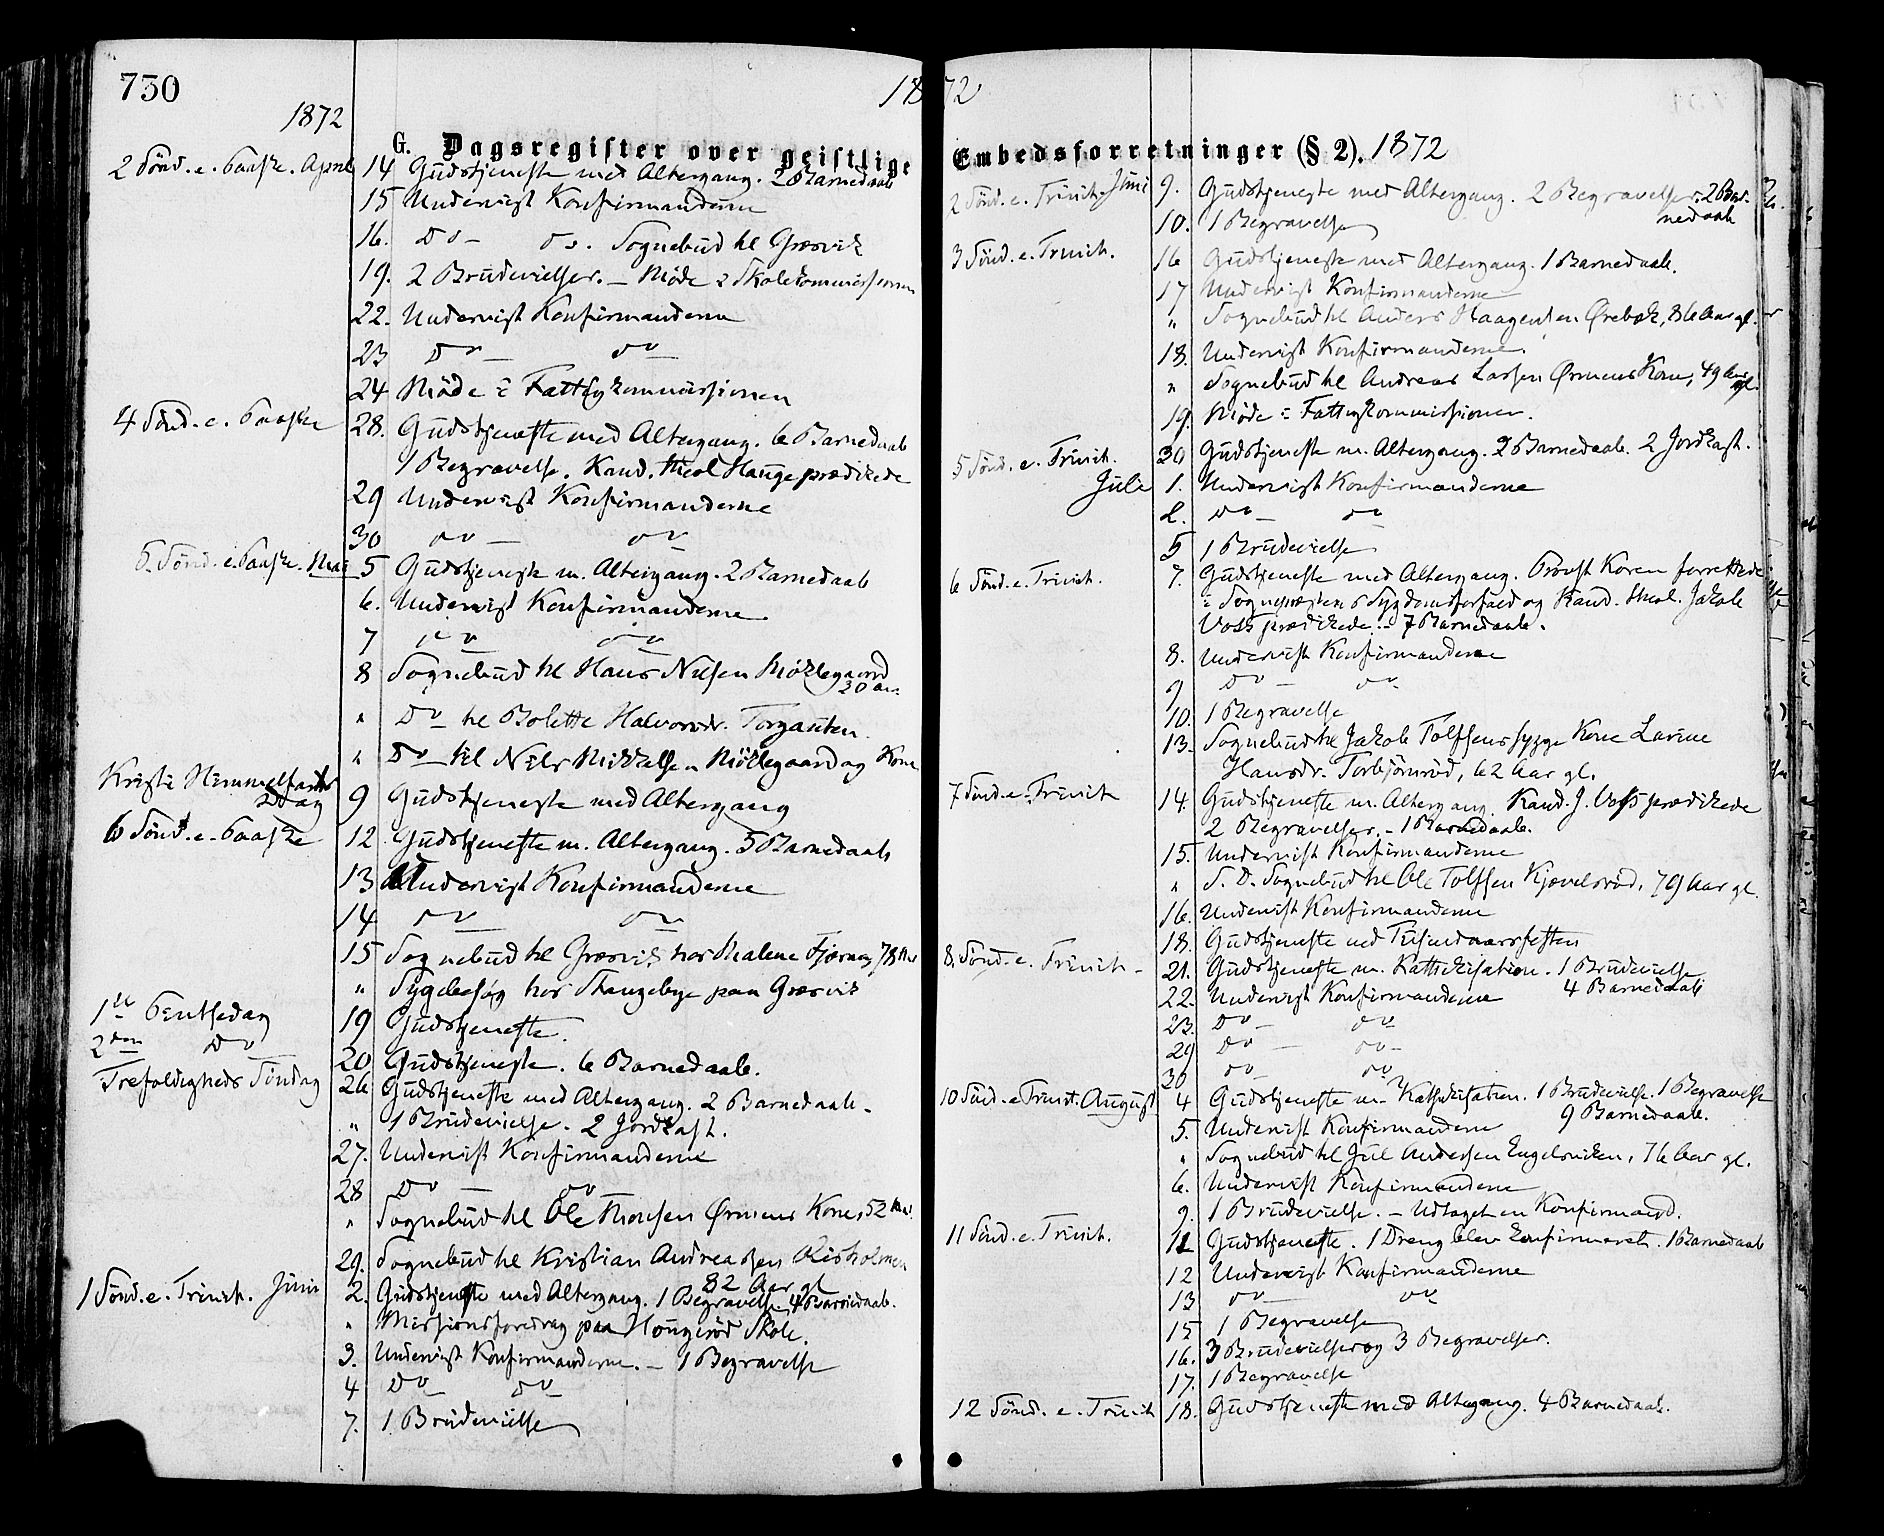 730
1872
1872
G. Dagsregister over geistlige
2 Sønd. e. Paaske. April 14 Gudstjeneste med Altergang. 2 Barnedaab
15 Undervist Konfirmanderne
16. Do — Do. Sognebud til Græsvik
19. 2 Brudevielser. — Møde i Skolekommissionen
22. Undervist Konfirmanderne
23 Do — Do
24 Møde i Fattigkommissionen
4 Sønd. e. Paaske 28. Gudstjeneste med Altergang. 6 Barnedaab
1 Begravelse. Kand. theol Hauge prædikede
29 Undervist Konfirmanderne
30 Do — Do
5. Sønd. e. Paaske. Mai 5 Gudstjeneste m. Altergang. 2 Barnedaab
6. Undervist Konfirmanderne
7 Do Do
8 Sognebud til Hans Nilsen Møklegaard
30 Aar
" Do til Bolette Halvorsdr. Torgauten
" Do til Nils Mikkelsen Møklegaard og Kone
Kristi Himmelfarts
Dag 9 Gudstjeneste med Altergang
6 Sønd. e. Paaske 12 Gudstjeneste m. Altergang. 5 Barnedaab
13 Undervist Konfirmanderne
14 Do Do
15 Sognebud til Græsvik hos Malene 78 Aar
" Sygebesøg hos Stangebye paa Græsvik
1ste Pentsedag 19 Gudstjeneste.
2den Do 20 Gudstjeneste. 6 Barnedaab.
Trefoldigheds Søndag 26 Gudstjeneste med Altergang. 2 Barnedaab.
" 1 Brudevielse. 2 Jordkast.
27. Undervist Konfirmanderne
28 Do — Do
" Sognebud til Ole Thoresen Ørmens Kone, 52 Aar.
29. Sognebud til Kristian Andreassen Risholmen
82 Aar gl
1 Sønd. e. Trinit. Juni 2. Gudstjeneste med Altergang. 1 Begravelse. 4 Barnedaab.
" Missionsforedrag paa Hougerød Skole.
3. Undervist Konfirmanderne. — 1 Begravelse
4 Do Do
7. 1 Brudevielse
Embedsforretninger (§ 2). 1872
2 Sønd. e. Trinit. Juni 9. Gudstjeneste med Altergang. 2 Begravelser. 2 Bar-
nedaab
10. 1 Begravelse
3 Sønd. e. Trinit. 16 Gudstjeneste med Altergang. 1 Barnedaab.
17 Undervist Konfirmanderne
" Sognebud til Anders Haagensen Ørebæk, 86 Aar gl.
18. Undervist Konfirmanderne.
" Sognebud til Andreas Larsen Ørmens Kone, 49 Aar
gl.
19. Møde i Fattigkommissionen.
5 Sønd. e. Trinit. 30 Gudstjeneste m. Altergang. 2 Barnedaab. 2 Jordkast.
Juli 1. Undervist Konfirmanderne
2. Do — Do
5 1 Brudevielse
6 Sønd. e. Trinit. 7. Gudstjeneste med Altergang. Provst Koren forrettede
i Sognepræstens Sygdomsforfald og Kand. theol. Jakob
Voss prædikede. — 7 Barnedaab.
8. Undervist Konfirmanderne
9 Do — Do
10. 1 Begravelse
13. Sognebud til Jakob Tolfsens syge Kone Larine
Hansdr. Torbjørnrød, 62 Aar gl.
7 Sønd. e. Trinit 14. Gudstjeneste m. Altergang. Kand. J. Voss prædikede
2 Begravelser. — 1 Barnedaab.
15. Undervist Konfirmanderne
" S. D. Sognebud til Ole Tolfsen Kjøvelsrød, 79 Aar gl.
16. Undervist Konfirmanderne
18. Gudstjeneste ved Tusindaarsfesten
8. Sønd. e. Trinit. — 21. Gudstjeneste m. Kathekisation. 1 Brudevielse
4 Barnedaab
22. Undervist Konfirmanderne
23. Do — Do
29 Do — Do —
30 Do — Do
10 Sønd. e Trinit. August 4 Gudstjeneste m. Kathekisation. 1 Brudevielse. 1 Begravelse
9 Barnedaab.
5. Undervist Konfirmanderne
" Sognebud til Jul Andersen Engelsviken, 76 Aar gl.
6. Undervist Konfirmanderne
9. 1 Brudevielse. — Udtaget en Konfirmand.
11 Sønd. e. Trinit. 11 Gudstjeneste. 1 Dreng blev konfirmeret. 1 Barnedaab
12 Undervist Konfirmanderne
13 Do — Do
15 1 Begravelse
16. 3 Brudevielser og 3 Begravelser.
17. 1 Begravelse
12 Sønd. e. Trinit 18. Gudstjeneste med Altergang. 4 Barnedaab.